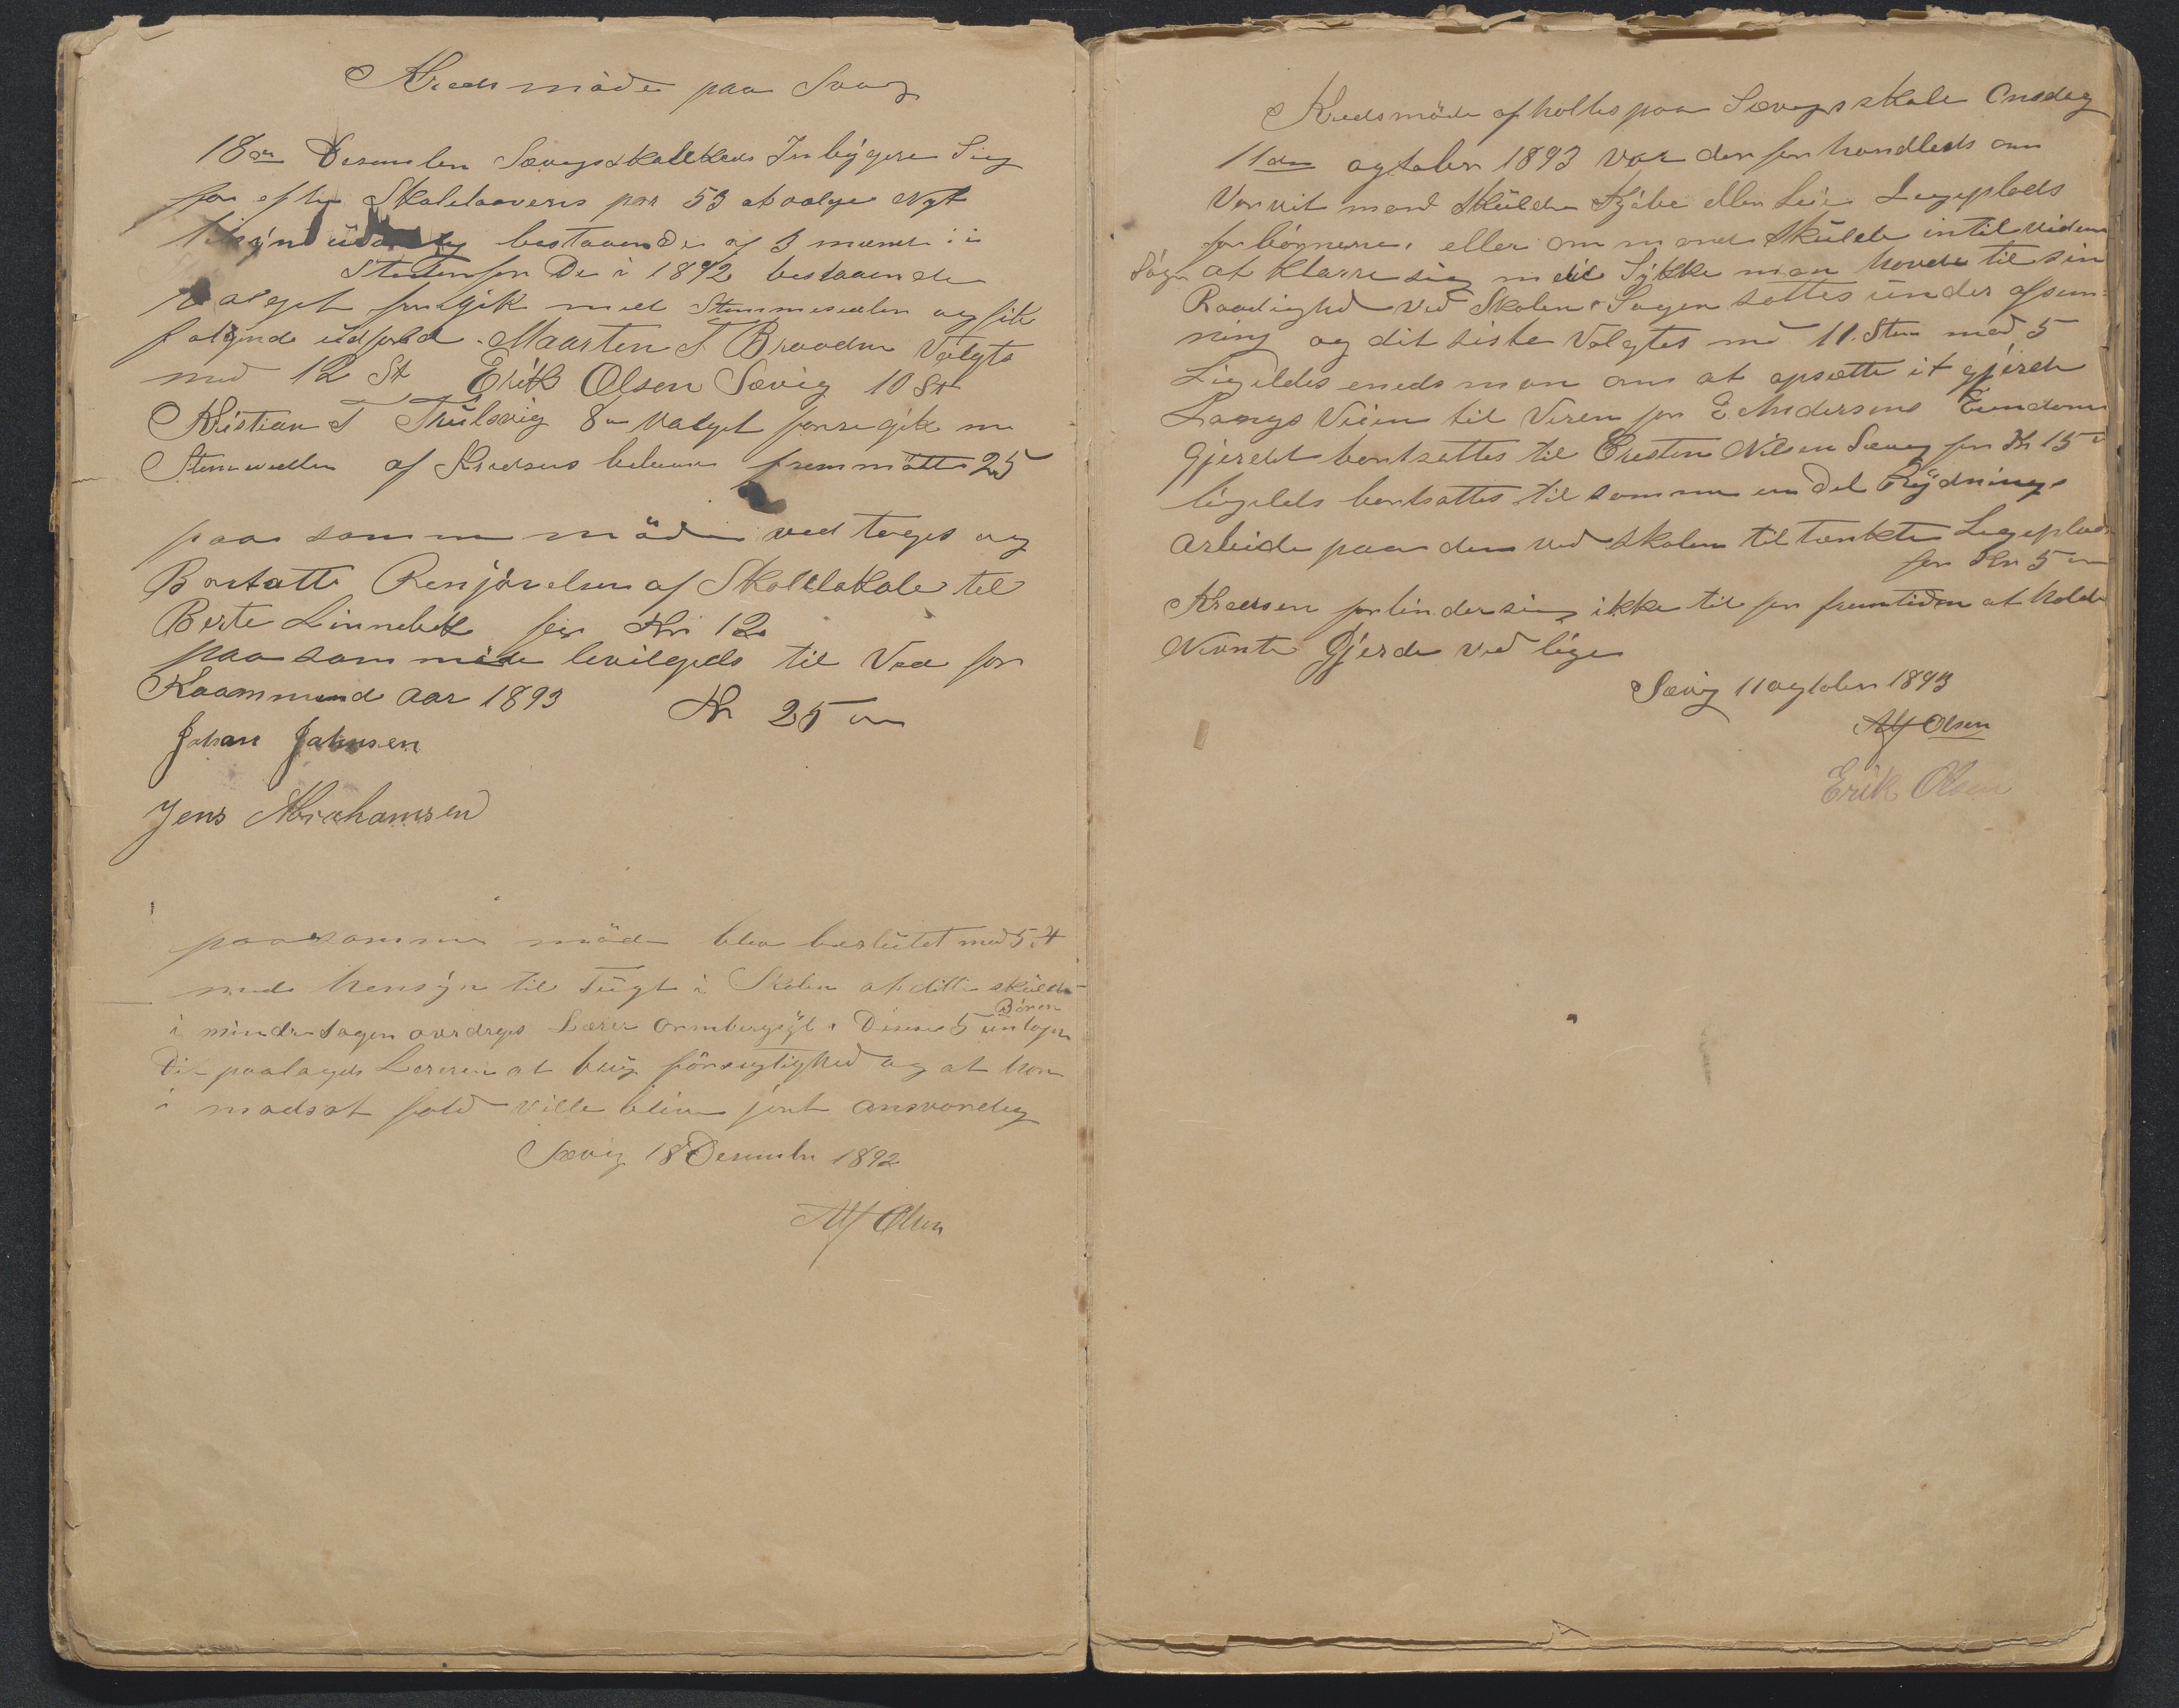 Kredsmöde paa Sævig
18de Desember Sævigs skolekreds Inbÿgere Sig
for efter Skolelovens par 53 at vælge Nyt
tilsÿns bestaaende af 3 mænd i
Steden for De i 1892 bestaaende
valget foregik med Stemmesedler og fik
følgende udfald. Maarten T Braadne Valgte
med 12 St Erik Olsen Sævig 10 St
Kristian T Thülsvig 8 valget foregik m
Stemmesedler af Kredsens beboere fremmötte 25
paa samme möde vedtoges og
Bortsatte Renjörelsen af Skolelokale til
Berte Linnebek for Kr 12
paa samme möde bevilgeds til Ved for
Kaammend aar 1893 Kr 25
Johan Jahnsen
Jens Abrahamsen
paa samme möde blev beslütet med 5.4
med hensÿn til Tügt i Skolen at dette skülde
i mindre sagen overdrges Lærer Börn
Disse 5 üntagen
Di paalagds Læreren at brüg försigtighed og at han
i modsat fald ville blive jort ansvarlig
Sævig 18 Desember 1892
Alf Olsen
Kredsmöde afholtes paa Sævigs skole Onsdag
11de ogtober 1893 var der forhandleds om
vor vit mand skülde Kjöbe eller Leie Legeplads
for börnene, eller om mand skülde intil videre
söge at klarre sig med det Sÿkke man havde til sin
Raadighed ved Skolen. Sagen settes ünder afstem
ning og dit siste Valgtes med 11. Stem mod 5
Ligeldes eneds man om at opsætte it gjerde
Langs Veien til Veren for E Andersens Eiendom
Gjerdet bortsattes til Cresten Nilsen Sævig for Kr 15
ligelds bortsattes til samme en Del Rÿdnings
Arbeide paa den ved skolen til tænkte Legeplads
for Kr 5
Kredsen forbinder sig ikke til for fremtiden at holde
Nevnte Gjerde ved lige
Sævig 11 ogtober 1893
Alf Olsen
Erik Olsen